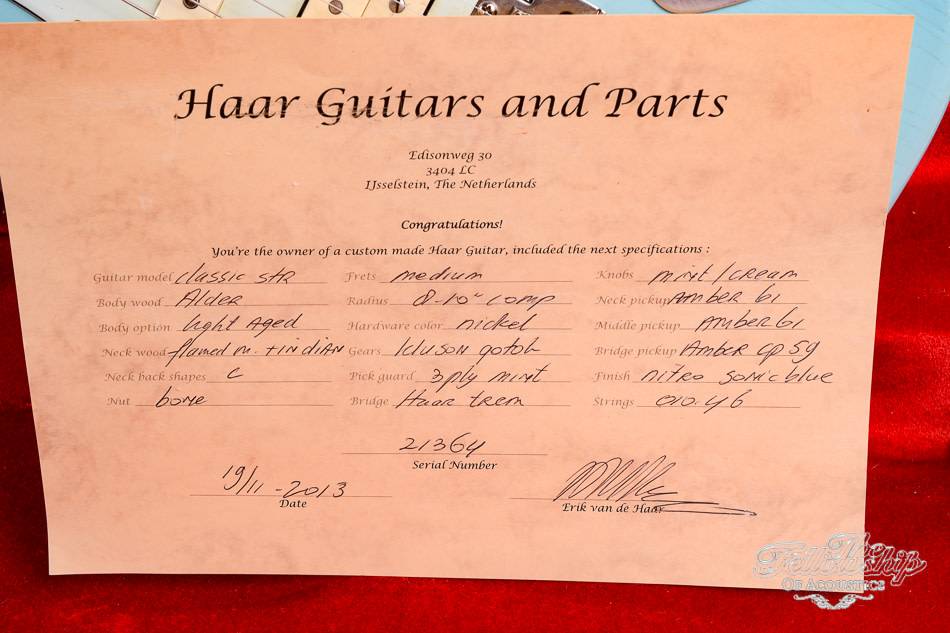 Haar Guitars and Parts
Edisonweg 30
3404 LC
IJsselstein, The Netherlands
Congratulations!
You're the owner of a custom made Haar Guitar, included the next specifications :
Guitar model classic STR Frets medium Knobs mint/cream
Body wood Alder Radius 8-10" comp Neck pickup Amber 61
Body option light Aged Hardware color nickel Middle pickup Amber 61
Neck wood flamed m. + indian Gears kluson gotoh Bridge pickup Amber CP 59
Neck back shapes C Pick guard 3ply mint Finish nitro sonic blue
Nut bone Bridge Haar trem Strings 010-46
21364
Serial Number
19/11-2013
Date
Erik van de Haar
The
Fellowship
Of Acoustics